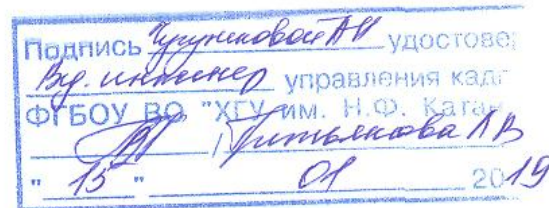 Подпись Чугунековой А Н удостове
Вд. инженер управления кад
ФГБОУ ВО "ХГУ им. Н.Ф. Катан
/ Третьякова Л В
" 15 " 01 2019